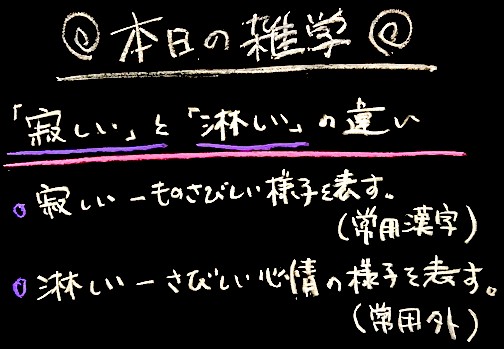 本日の雑学
「寂しい」と「淋しい」の違い
寂しい－ものさびしい様子を表す。
(常用漢字)
淋しい－さびしい心情の様子を表す。
(常用外)